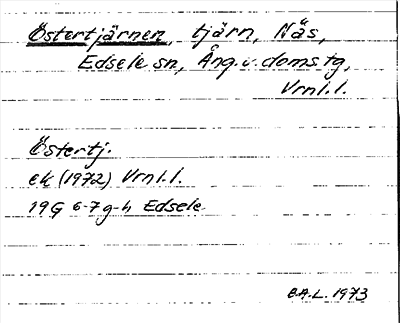 Östertjärnen, tjärn, Näs,
Edsele sn, Ång. v. doms tg,
Vrnl.l.
Östertj.
ek (1972) Vrnl.l.
19G 6-7 g-h Edsele
B.A.L. 1973